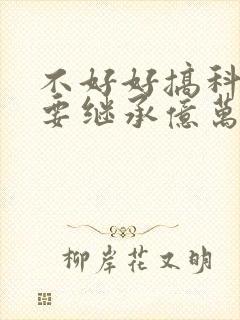 不好好搞科
要继承億萬
柳岸花又明